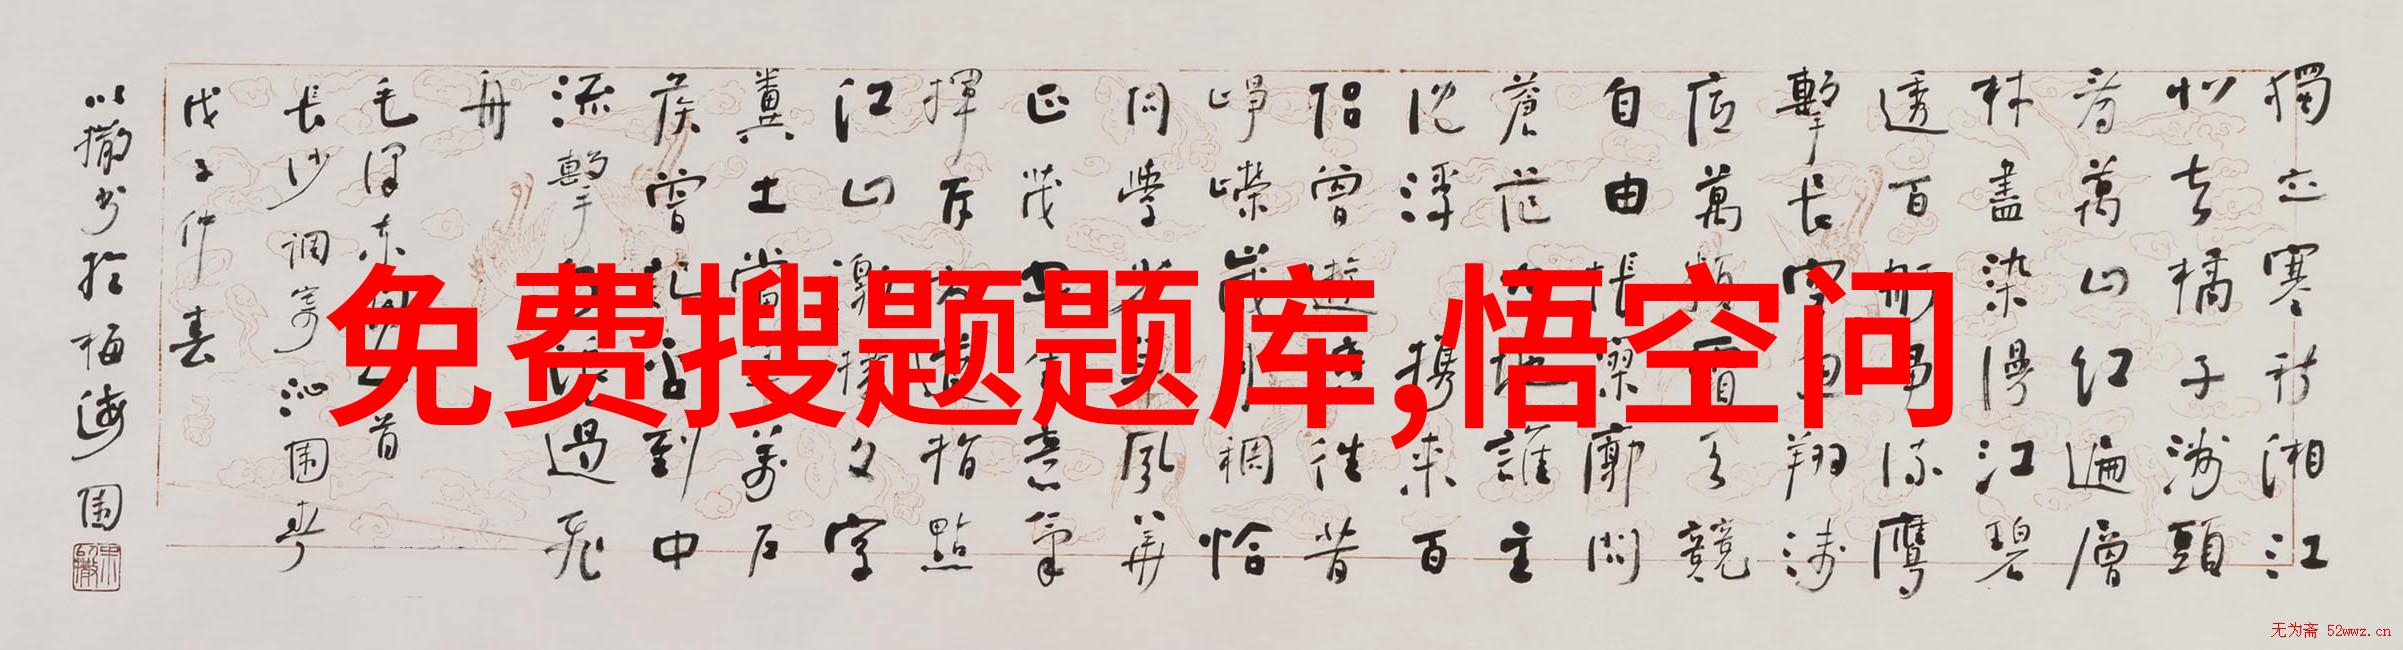 獨立寒秋湘江
北去橘子洲頭
看萬山红遍層
林盡染漫江碧
透百舸爭流鷹
擊長空魚翔淺
底萬類霜天競
自由悵寥廓問
蒼茫大地誰主
沈浮攜來百
侣曾遊憶往昔
崢嶸歲月稠恰
同學少年風華
正茂書生意氣
揮斥方遒指點
江山激揚文字
糞土當年萬户
侯曾記否到中
流擊水浪遏飛
舟
毛澤東詞一首
長沙調寄沁園春
戊子仲春
以撒書於梅海園
免费搜题题库,悟空问
无为斋 52wwz.cn